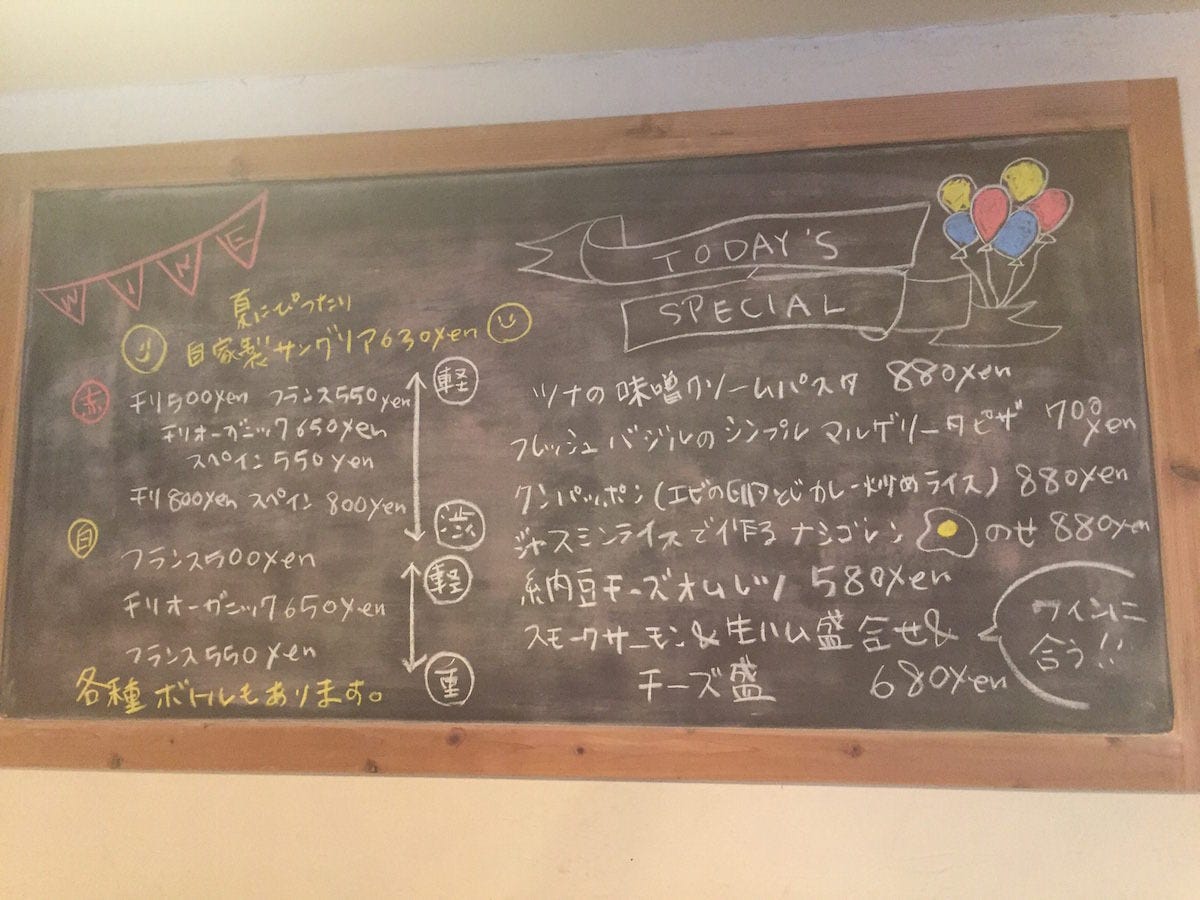 WINE
夏にぴったり
自家製サングリア630yen
赤
チリ500yen フランス550yen
チリオーガニック650yen
スペイン550yen
チリ800yen スペイン800yen
軽
渋
白
フランス500yen
チリオーガニック650yen
フランス550yen
軽
重
各種ボトルもあります。
TODAY'S
SPECIAL
ツナの味噌クリームパスタ 880yen
フレッシュバジルのシンプルマルゲリータピザ 700yen
クンパッポン(エビの卵とじカレー炒めライス) 880yen
ジャスミンライスで作るナシゴレン のせ 880yen
納豆チーズオムレツ 580yen
スモークサーモン&生ハム盛合せ&
チーズ盛 680yen
ワインに
合う!!